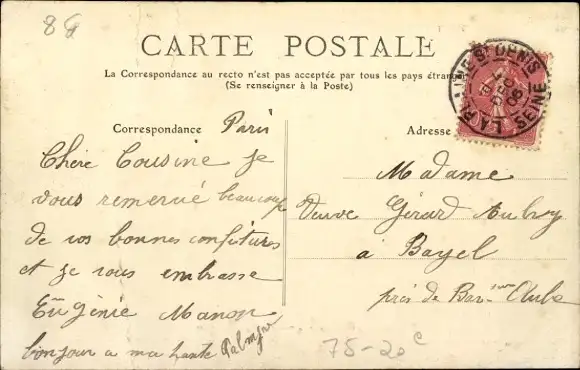 8G
CARTE POSTALE
La Correspondance au recto n'est pas acceptée par tous les pays étrang
(Se renseigner à la Poste)
LA PLAINE ST DENIS
SEINE
Correspondance
Paris
Chère Cousine je
vous remercié beaucoup
de vos bonnes confitures
et je vous embrasse
Eugénie Manon
bonjour a ma tante Palmyre
Adresse
Madame
Veuve Gérard Aubry
à Bayel
près de Bar-sur Aube
75-20e